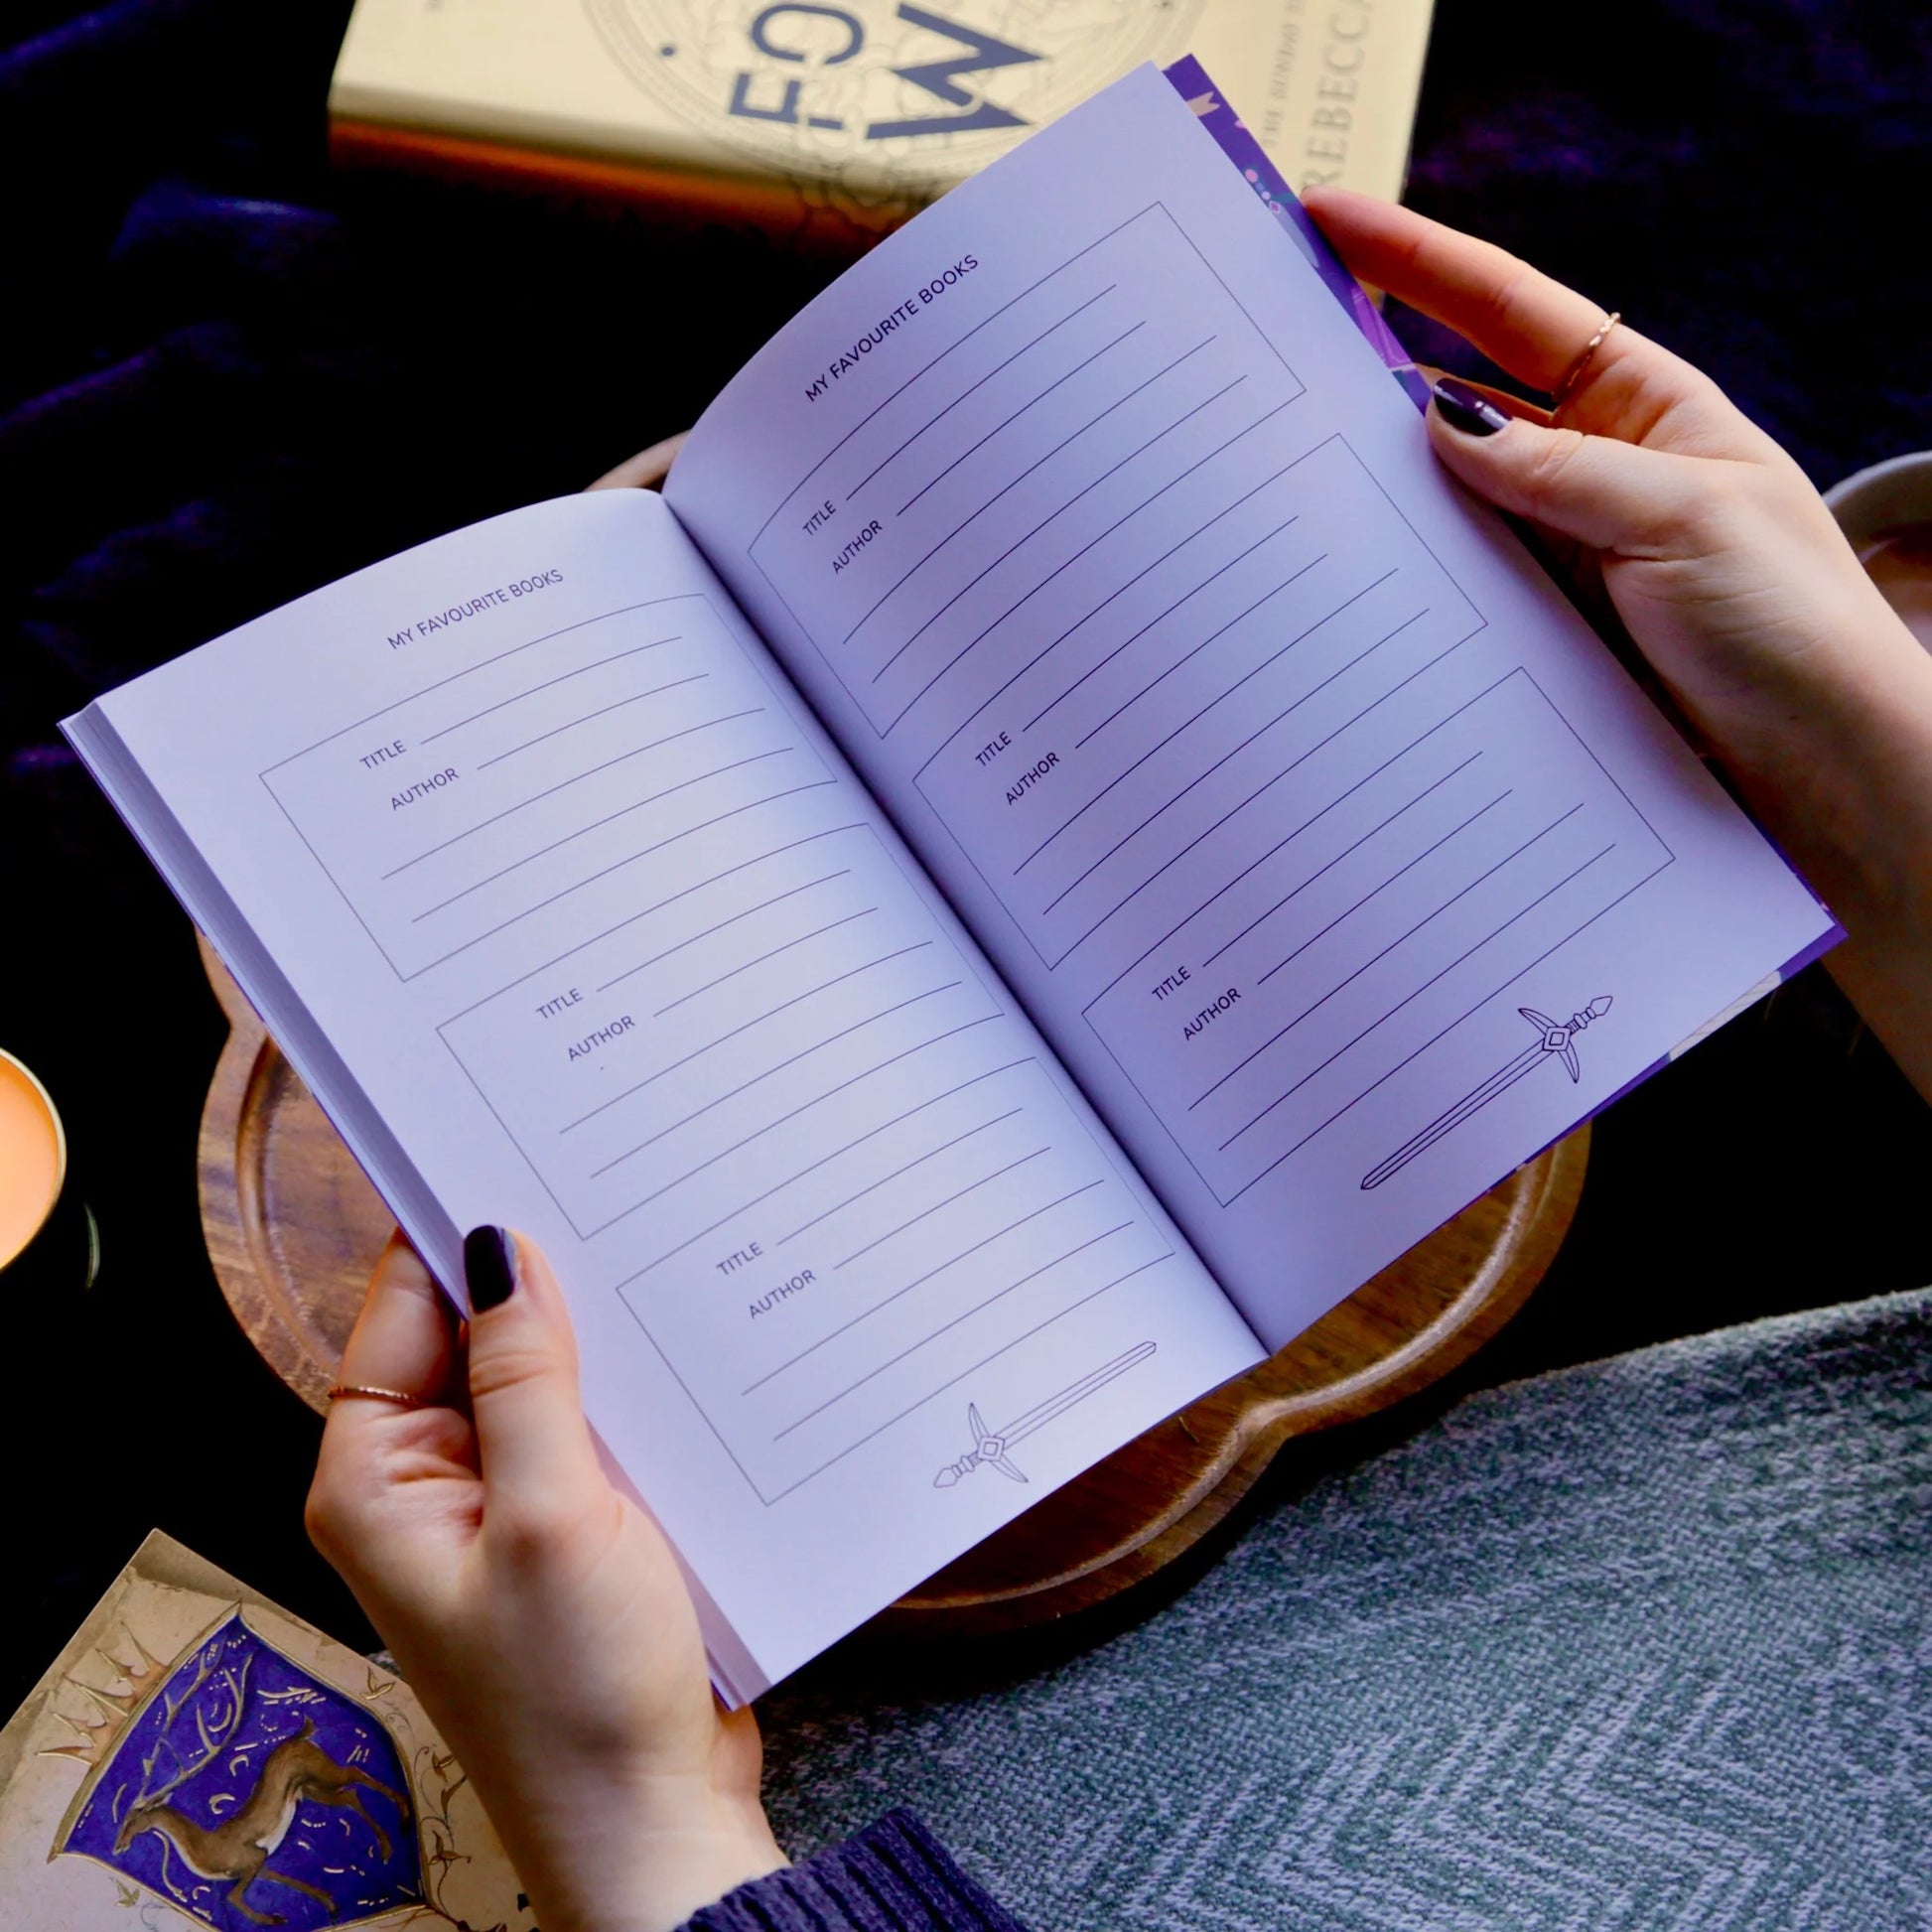 FO
W
THE SUNDAY
REBECCA
MY FAVOURITE BOOKS
TITLE
AUTHOR
TITLE
AUTHOR
TITLE
AUTHOR
MY FAVOURITE BOOKS
TITLE
AUTHOR
TITLE
AUTHOR
TITLE
AUTHOR